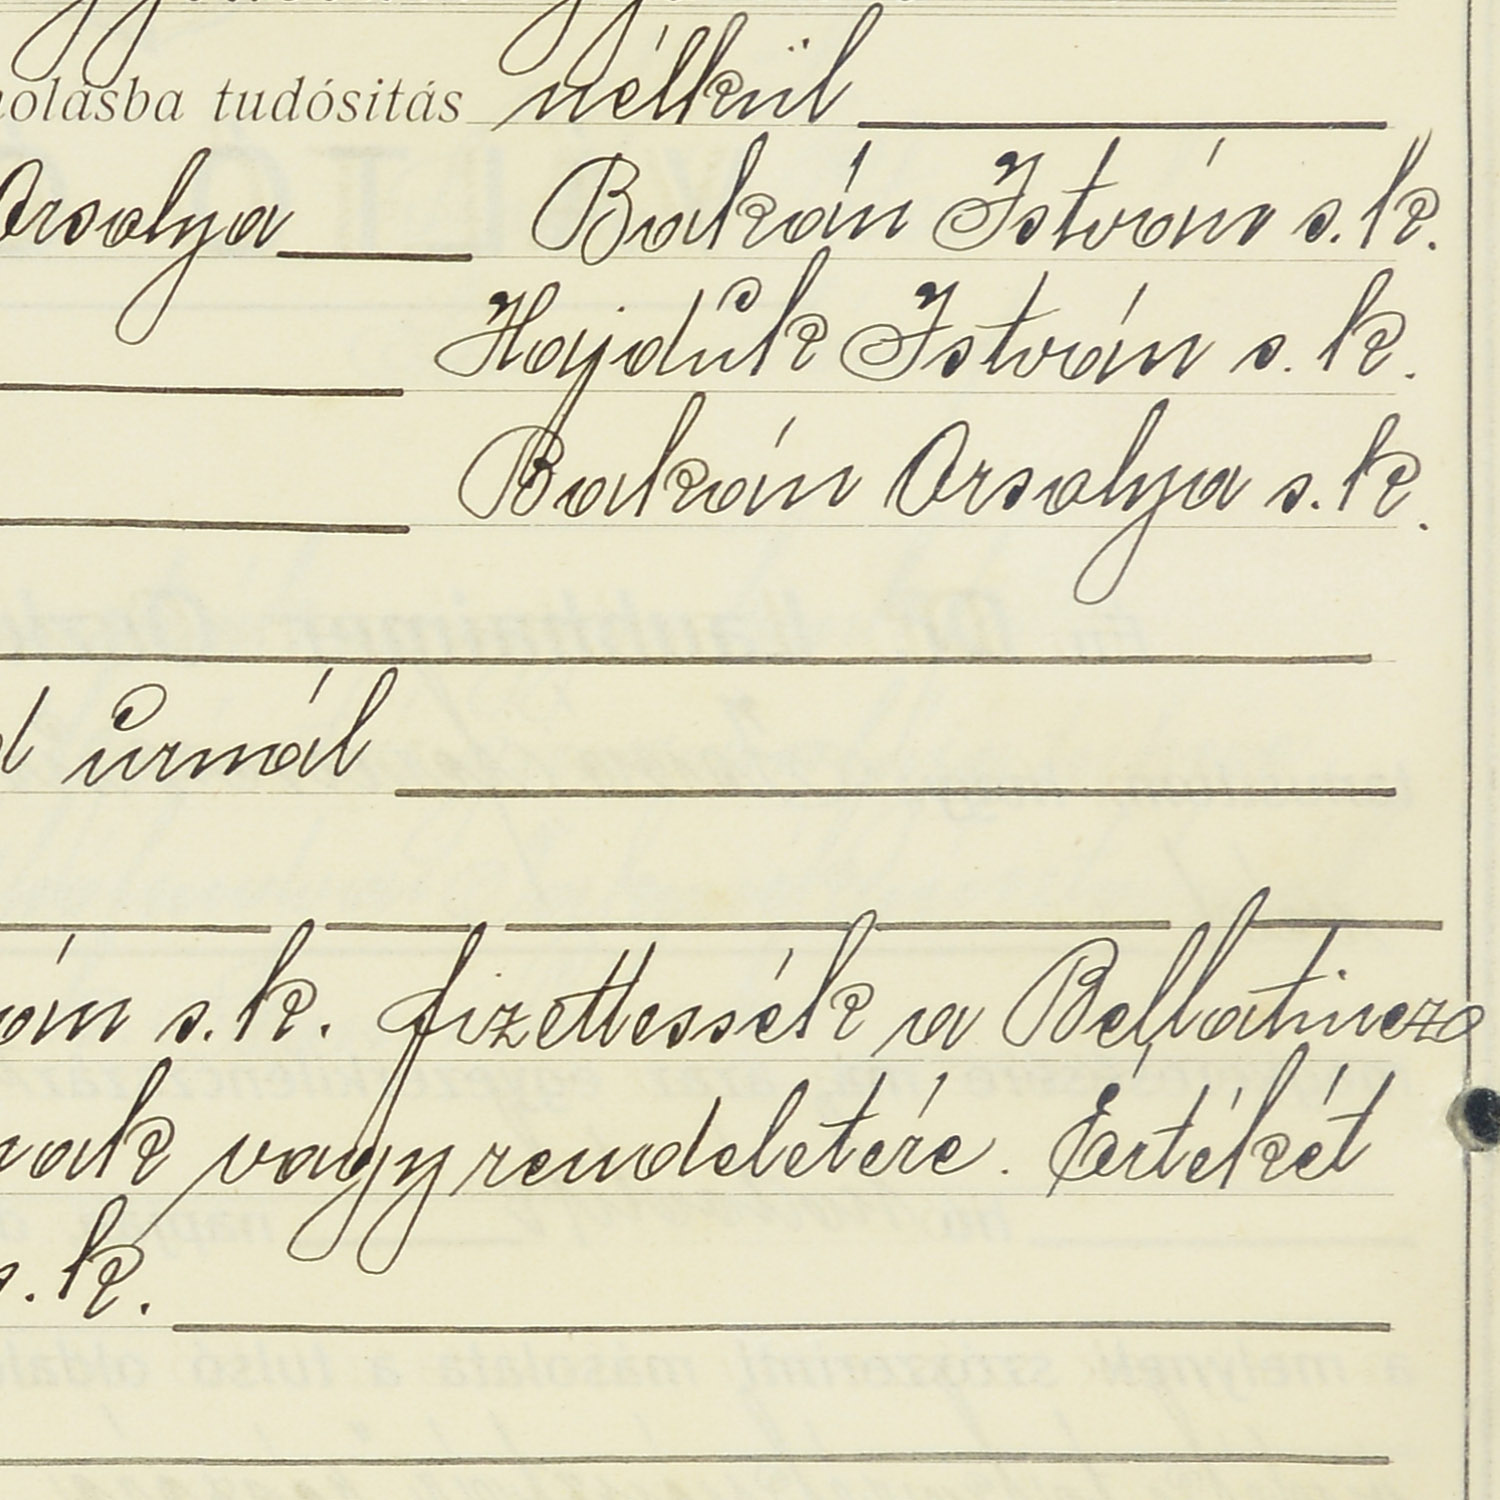 tudósitás nélkül
Orsolya Bakán István s.k.
Hajdúk István s.k.
Bakán Orsolya s.k.
úrnál
s.k. fizettessék a Bellatincze
vagy rendeletére. Értékét
s.k.